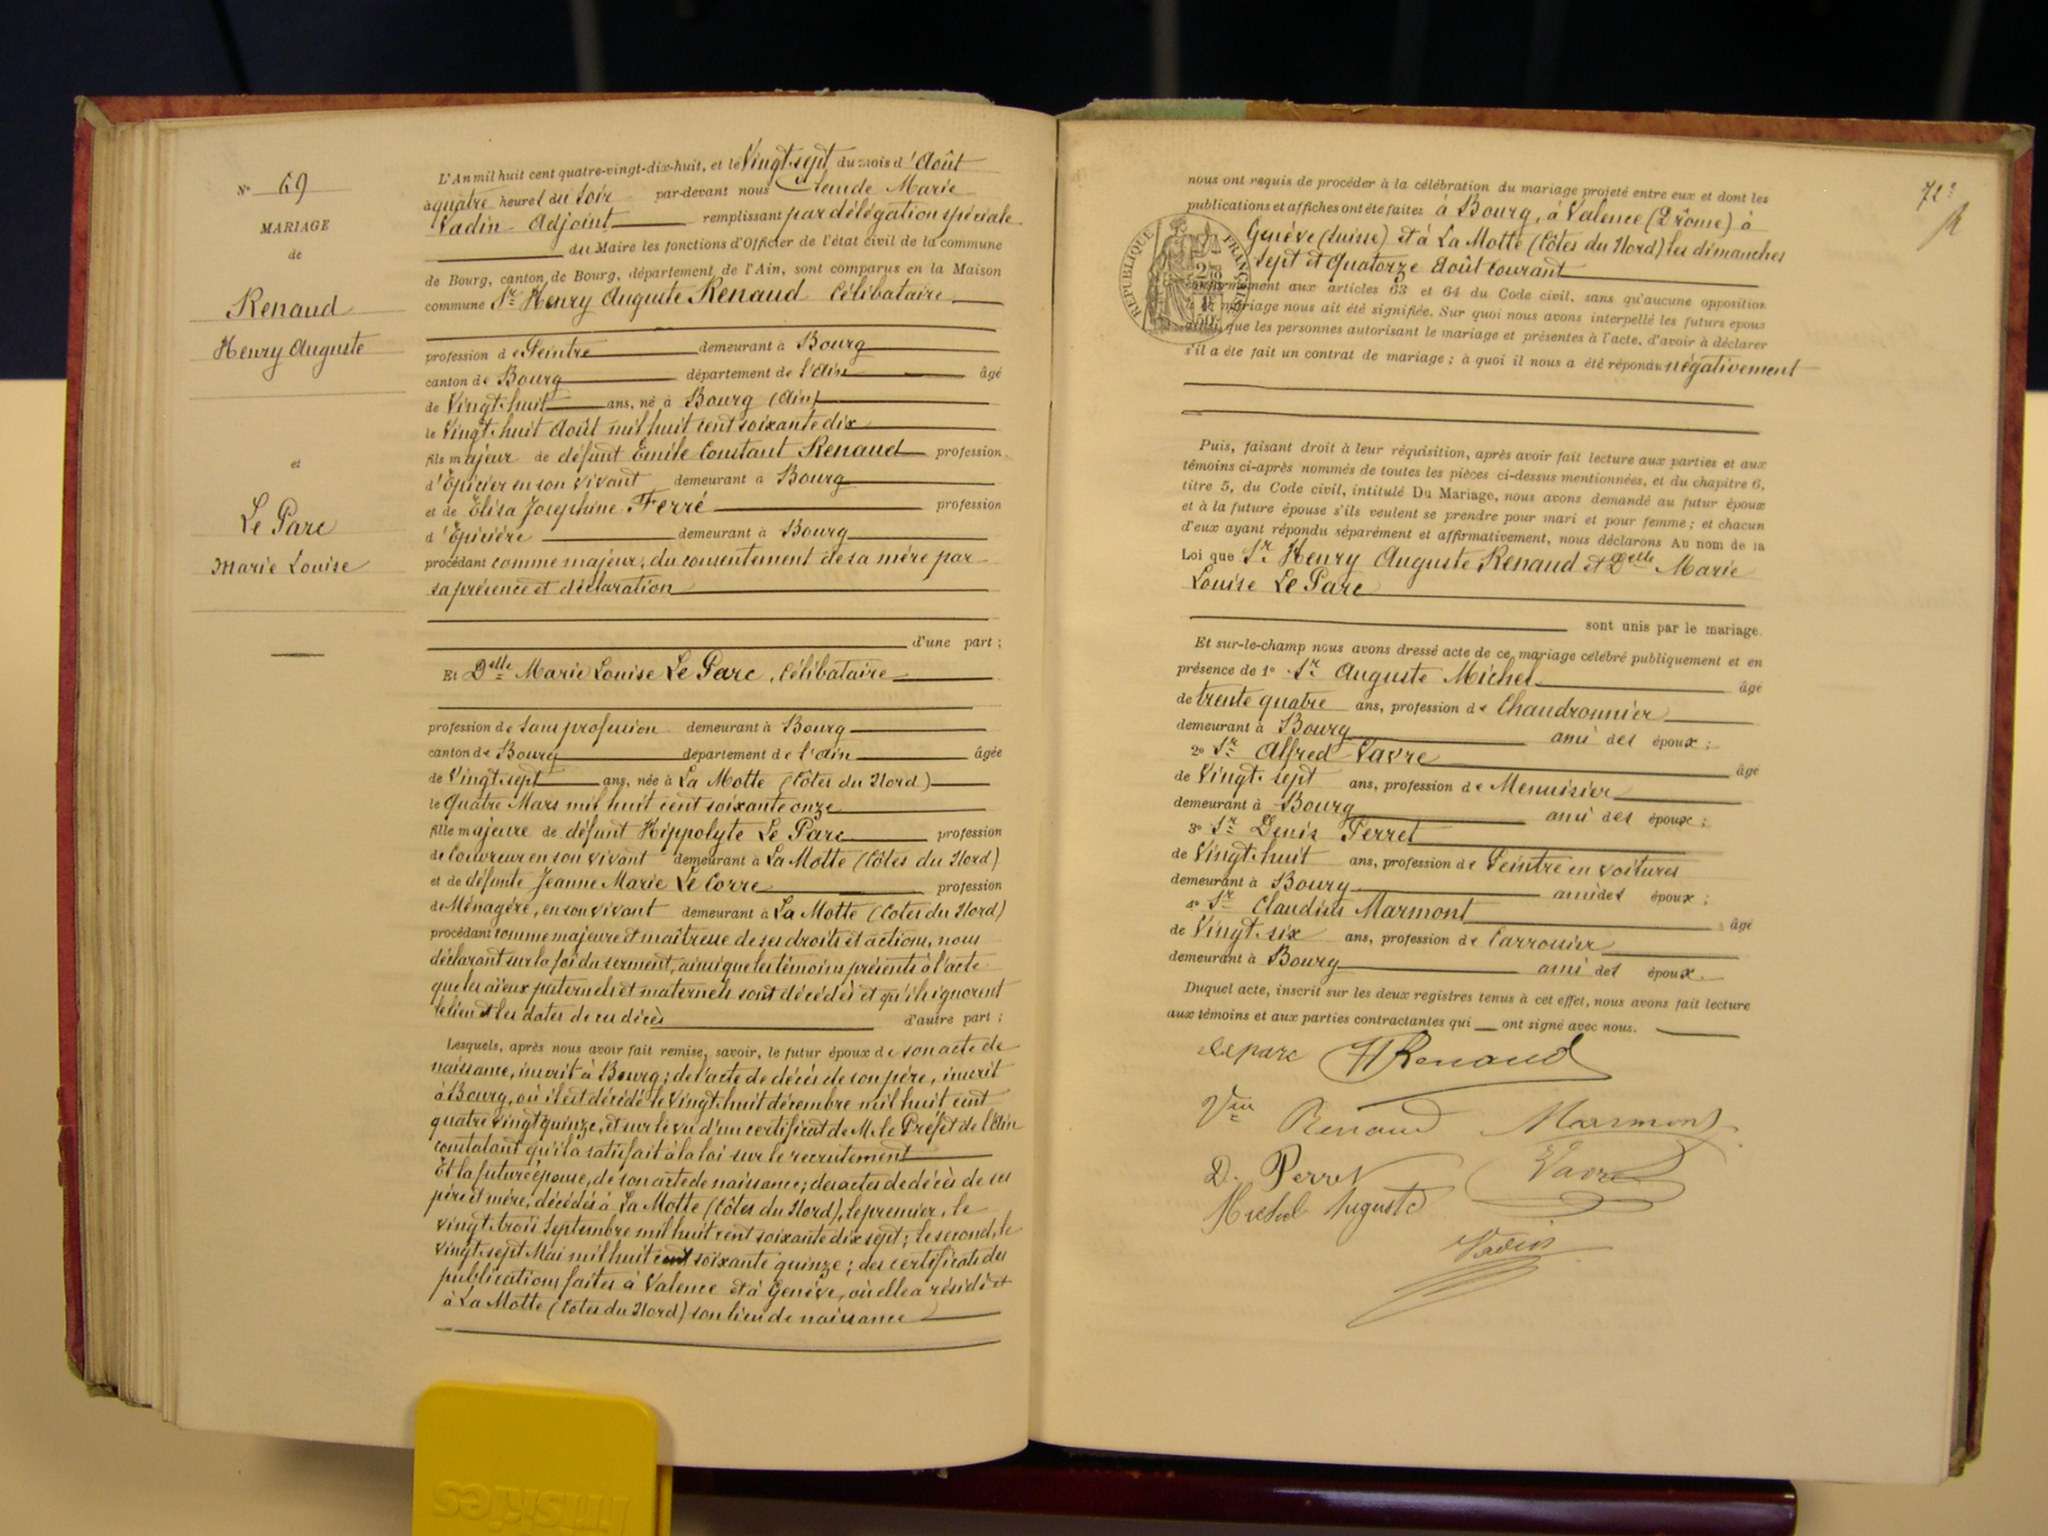 N° 69
MARIAGE
de
Renaud
Henry Auguste
et
Le Parc
Marie Louise
L'An mil huit cent quatre-vingt-dix-huit, et le Vingt-sept du mois d'Août
à quatre heures du Soir par-devant nous Claude Marie
Vadin Adjoint remplissant par délégation spéciale
du Maire les fonctions d'Officier de l'état civil de la commune
de Bourg, canton de Bourg, département de l'Ain, sont comparus en la Maison
commune Sr Henry Auguste Renaud Célibataire
profession de Peintre demeurant à Bourg
canton de Bourg département de l'Ain âgé
de Vingt-huit ans, né à Bourg (Ain)
le Vingt-huit Août mil huit cent soixante dix
fils majeur de défunt Emile Constant Renaud profession
d'Epicier en son vivant demeurant à Bourg
et de Elisa Josephine Ferré profession
d'Epicière demeurant à Bourg
procédant comme majeur, du consentement de sa mère par
sa présence et déclaration
d'une part ;
Et Delle Marie Louise Le Parc, Célibataire
profession de Sans profession demeurant à Bourg
canton de Bourg département de l'Ain âgée
de Vingt-sept ans, née à La Motte (Côtes du Nord)
le Quatre Mars mil huit cent soixante onze
fille majeure de défunt Hippolyte Le Parc profession
de Couvreur en son vivant demeurant à La Motte (Côtes du Nord)
et de défunte Jeanne Marie Le Corre profession
de Ménagère, en son vivant demeurant à La Motte (Cotes du Nord)
procédant comme majeure et maîtresse de ses droits et actions, nous
déclarant sur la foi du serment, ainsi que les témoins présents à l'acte
que les aïeux paternels et maternels sont décédés et qu'ils ignorent
le lieu et les dates de ces décès d'autre part ;
Lesquels, après nous avoir fait remise, savoir, le futur époux de son acte de
naissance, inscrit à Bourg ; de l'acte de décès de son père, inscrit
à Bourg, où il est décédé le Vingt-huit décembre mil huit cent
quatre vingt quinze, et sur le vu d'un certificat de M. le Préfet de l'Ain
constatant qu'il a satisfait à la loi sur le recrutement
Et la future épouse, de son acte de naissance ; des actes de décès de ses
père et mère, décédés à La Motte (Côtes du Nord), le premier, le
vingt-trois Septembre mil huit cent soixante dix sept ; le second, le
vingt-sept Mai mil huit cent soixante quinze ; des certificats des
publications faites à Valence et à Genève, où elle a résidé et
à La Motte (Cotes du Nord) son lieu de naissance
72e
nous ont requis de procéder à la célébration du mariage projeté entre eux et dont les
publications et affiches ont été faites à Bourg, à Valence (Drôme) à
Genève (Suisse) et à La Motte (Côtes du Nord) les dimanches
sept et Quatorze Août courant
RÉPUBLIQUE FRANÇAISE
conformément aux articles 63 et 64 du Code civil, sans qu'aucune opposition
à ce mariage nous ait été signifiée. Sur quoi nous avons interpellé les futurs époux
ainsi que les personnes autorisant le mariage et présentes à l'acte, d'avoir à déclarer
s'il a été fait un contrat de mariage ; à quoi il nous a été répondu négativement
Puis, faisant droit à leur réquisition, après avoir fait lecture aux parties et aux
témoins ci-après nommés de toutes les pièces ci-dessus mentionnées, et du chapitre 6,
titre 5, du Code civil, intitulé Du Mariage, nous avons demandé au futur époux
et à la future épouse s'ils veulent se prendre pour mari et pour femme ; et chacun
d'eux ayant répondu séparément et affirmativement, nous déclarons Au nom de la
Loi que Sr Henry Auguste Renaud et Delle Marie
Louise Le Parc
sont unis par le mariage.
Et sur-le-champ nous avons dressé acte de ce mariage célébré publiquement et en
présence de 1° Sr Auguste Michel âgé
de trente quatre ans, profession de Chaudronnier
demeurant à Bourg ami des époux ;
2° Sr Alfred Vavre âgé
de Vingt-sept ans, profession de Menuisier
demeurant à Bourg ami des époux ;
3° Sr Denis Perret
de Vingt-huit ans, profession de Peintre en voitures
demeurant à Bourg ami des époux ;
4° Sr Claudius Marmont âgé
de Vingt-six ans, profession de Carrossier
demeurant à Bourg ami des époux.
Duquel acte, inscrit sur les deux registres tenus à cet effet, nous avons fait lecture
aux témoins et aux parties contractantes qui ont signé avec nous.
Leparc HRenaud
Vve Renaud Marmont
D. Perret Vavre
Michel Auguste
Vadin